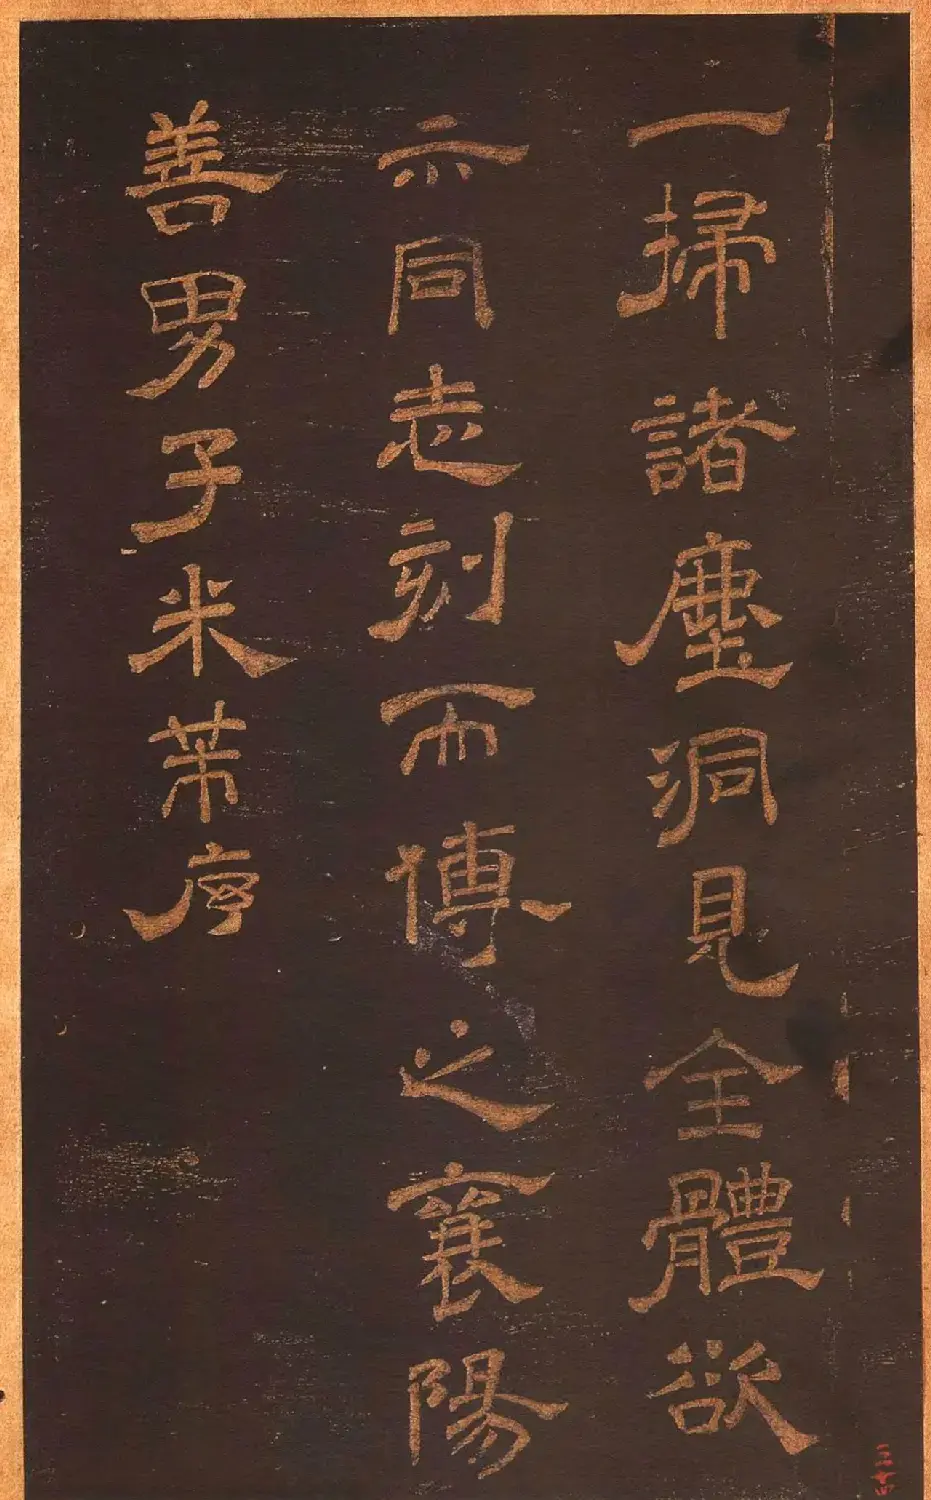 一掃諸塵洞見全體欲
示同志刻而博之襄陽
善男子米芾序
三十四